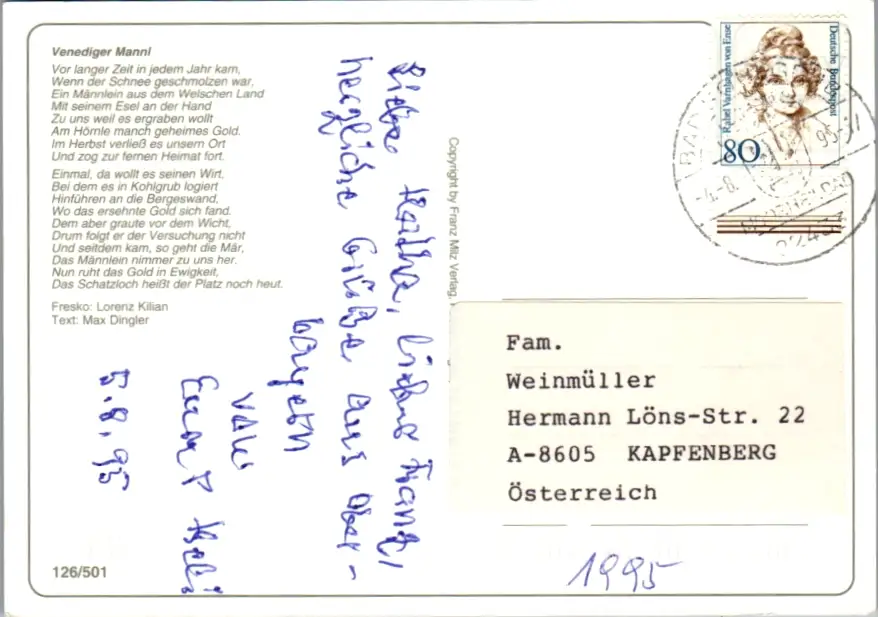 Venediger Manni
Vor langer Zeit in jedem Jahr kam,
Wenn der Schnee geschmolzen war,
Ein Männlein aus dem Welschen Land
Mit seinem Esel an der Hand
Zu uns weil es ergraben wollt
Am Hörnle manch geheimes Gold.
Im Herbst verließ es unsern Ort
Und zog zur fernen Heimat fort.
Einmal, da wollt es seinen Wirt,
Bei dem es in Kohlgrub logiert
Hinführen an die Bergeswand,
Wo das ersehnte Gold sich fand.
Dem aber graute vor dem Wicht,
Drum folgt er der Versuchung nicht
Und seitdem kam, so geht die Mär,
Das Männlein nimmer zu uns her.
Nun ruht das Gold in Ewigkeit,
Das Schatzloch heißt der Platz noch heut.
Fresko: Lorenz Kilian
Text: Max Dingler
Liebe Hertha, lieber Franz,
herzliche Grüße aus Ober-
bayern
von
5.8.95
126/501
Copyright by Franz Milz Verlag,
Deutsche Bundespost
Rahel Varnhagen von Ense
80
BAD
-4.-8.
95
82433
Fam.
Weinmüller
Hermann Löns-Str. 22
A-8605 KAPFENBERG
Österreich
1995